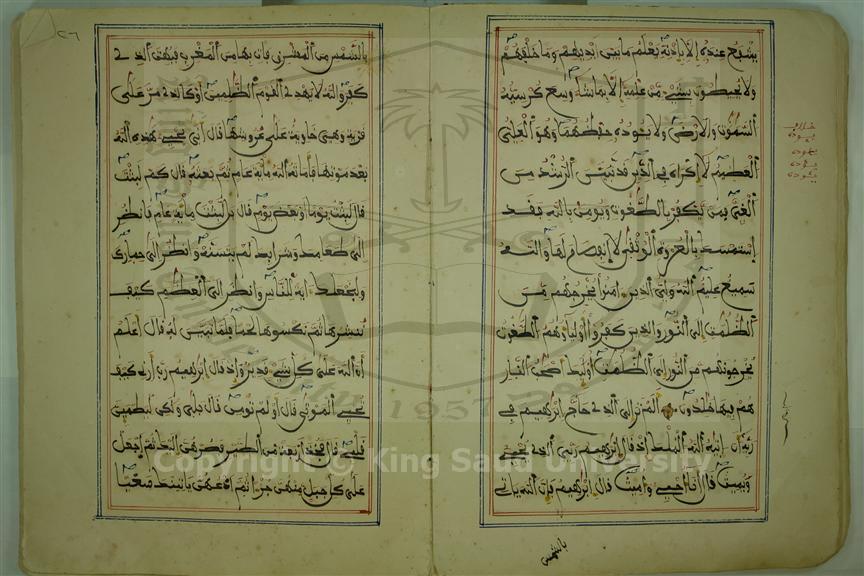 يشفع عنده إلا بإذنه يعلم ما بين أيديهم وما خلفهم
ولا يحيطون بشيء من علمه إلا بما شاء وسع كرسيه
السموت والارض ولا يوده حفظهما وهو العلي
العظيم لا إكراه في الدين قد تبين الرشد من
الغي فمن يكفر بالطغوت ويومن بالله فقد
إستمسك بالعروة الوثقى لا إنفصام لها والله
سميع عليم الله ولي الذين ءامنوا يخرجهم من
الظلمت إلى النور والذين كفروا أولياؤهم الطغوت
يخرجونهم من النور إلى الظلمت أولئك أصحب النار
هم فيها خلدون ألم تر إلى الذي حاج إبرهيم في
ربه أن ءاتيه الله الملك إذ قال إبرهيم ربي الذي يحيي
ويميت قال أنا أحيي وأميت قال إبرهيم فإن الله ياتي
بالشمس
بالشمس من المشرق فات بها من المغرب فبهت الذي
كفر والله لا يهدي القوم الظلمين أو كالذي مر على
قرية وهي خاوية على عروشها قال أنى يحيي هذه الله
بعد موتها فأماته الله ماية عام ثم بعثه قال كم لبثت
قال لبثت يوما او بعض يوم قال بل لبثت ماية عام فانظر
إلى طعامك وشرابك لم يتسنه وانظر إلى حمارك
ولنجعلك ءاية للناس وانظر إلى العظام كيف
ننشرها ثم نكسوها لحما فلما تبين له قال أعلم
أن الله على كل شيء قدير وإذ قال إبرهيم رب أرني كيف
تحيي الموتى قال أولم تومن قال بلى ولكن ليطمين
قلبي قال فخذ أربعة من الطير فصرهن إليك ثم اجعل
على كل جبل منهن جزءا ثم ادعهن ياتينك سعيا
٢٦
1957
Copyright © King Saud University